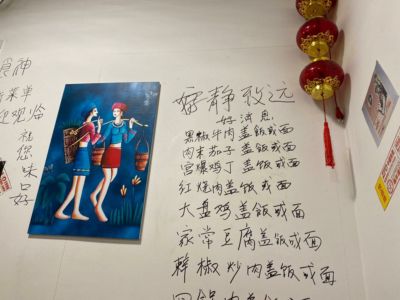 食神
菜单
欢迎光临
礼
您
味
口
好
宁静致远
好消息
黑椒牛肉盖饭或面
肉末茄子盖饭或面
宫爆鸡丁盖饭或面
红烧肉盖饭或面
大盘鸡盖饭或面
家常豆腐盖饭或面
辣椒炒肉盖饭或面
回锅肉盖饭或面